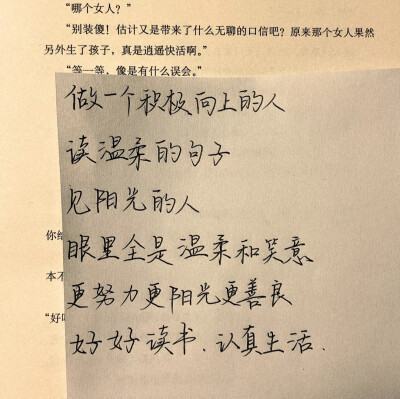 “哪个女人？”
“别装傻！估计又是带来了什么无聊的口信吧？原来那个女人果然
另外生了孩子，真是逍遥快活啊。”
“等一等，像是有什么误会。”
做一个积极向上的人
读温柔的句子
见阳光的人
眼里全是温柔和笑意
更努力更阳光更善良
好好读书、认真生活.
你
本不
“好